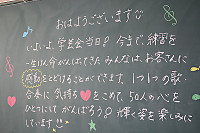 おはようございます
いよいよ、学芸会当日！今まで、練習を
一生けん命がんばってきたみんなは、お客さんに
感動をとどけることができます。1つ1つの歌・
合奏に気持ちをこめて、50人の心を
ひとつにしてがんばろう！輝く姿を楽しみに
しています!!